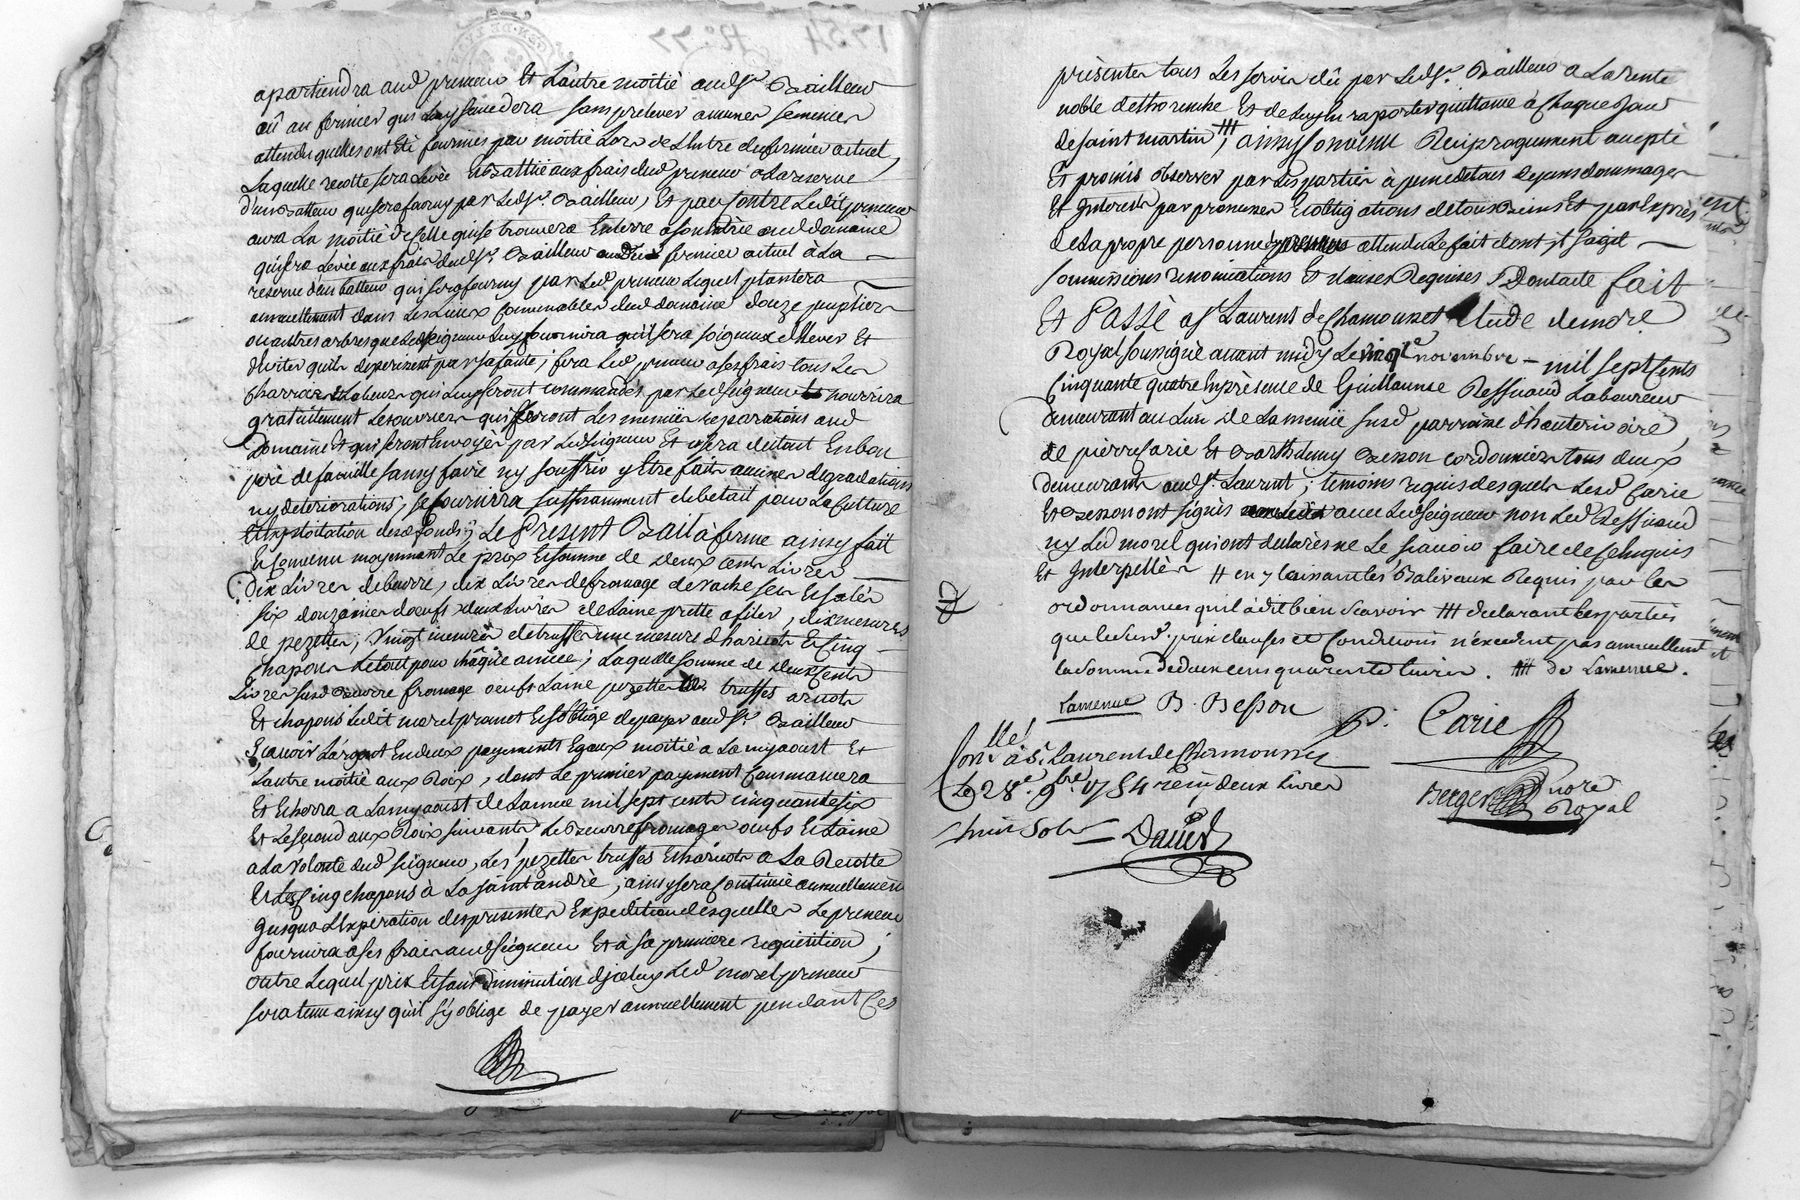 apartiendra aud preneur Et Lautre moitié audsr Bailleur
oû au fermier qui Luy succedera sans prelever aucunes semences
attendu quelles ont Eté fournies par moitié Lors de L'Entrée du fermier actuel,
Laquelle recolte sera Levée Et Battüe aux frais dud preneur a La reserve
d'un Batteur qui sera fourny par Ledsr. Bailleur, Et par Contre Ledit preneur
aura La moitié de Celle qui se trouvera En terre a son Entrée aud domaine
qui sera Levée aux frais dudsr. Bailleur fermier actuel à La
reserve d'un batteur qui sera fourny par Led preneur Lequel plantera
annuellement dans Les Lieux Convenables dud domaine douze peupliers
ou autres arbres que Led seigneur Luy fournira qu'il sera soigneux d'Elever Et
d'Eviter qu'ils deperissent par sa faute; fera Led preneur a ses frais tous Les
Charrois Et Labeurs qui Luy seront commandés par Led seigneur nourrira
gratuitement Les ouvriers qui feront Les menües reparations aud
Domaine Et qui seront Envoyés par Led seigneur Et usera du tout En bon
pere de famille sans y faire ny souffrir y Etre fait aucunes degradations
ny deteriorations; se fournira suffisamment de betail pour La Culture
Et Exploitation desd fonds; Le Present Bail à ferme ainsy fait
Et Convenu moyennant Le prix Et somme de deux cents Livres
Dix Livres de beurre, dix Livres de fromage de vache sec Et salés
six douzaines d'oeufs deux Livres de Laine prette a filer, dix mesures
de pezettes, vingt mesures de truffes une mesure d'haricots Et Cinq
chapons Le tout pour châque année; Laquelle somme de deux Cents
Livres susd Beurre fromage oeufs Laine pezettes truffes aricots
Et chapons Ledit morel promet Et s'oblige de payer audsr. Bailleur
Sçavoir L'argent En deux payements Egaux moitié a La my aoust Et
Lautre moitié aux Roix, dont Le premier payement Commancera
Et Echerra a La my aoust de Lannée mil sept cents cinquante six
Et Le second aux Roix suivants Le Beurre fromages oeufs Et Laine
a La volonté dud seigneur, Les pezettes truffes Et haricots a La Recolte
Et Les Cinq chapons à La saint andré, ainsy sera Continüé annuellement
Jusqua L'Expiration des presentes Expedition desquelles Le preneur
fournira a ses frais aud seigneur Et à sa premiere requisition;
outre Lequel prix Et sans diminution d'jceluy Led morel preneur
sera tenu ainsy qu'il s'y oblige de payer annuellement pendant Ces
présentes tous Les servis dûs par Ledsr. Bailleur a La rente
noble de thorenche Et de Luy En raporter quittance à Chaque jour
de saint martin, ╫ ainsy Convenu Reciproquement accepté
Et promis observer par Les parties à peine de tous depens dommages
Et Interets par promesses Et obligations de tous Biens Et par Exprès
de La propre personne attendu Le fait dont jl s'agit
soumissions renonciations Et clauses Requises &Dont acte fait
Et Passé a St Laurent de Chamousset Etude du nore
Royal soussigné avant midy Le novembre - mil sept Cents
Cinquante quatre En présence de Guillaume Ressicaud Laboureur
demeurant au Lieu de La menüe susd parroisse d'hauterivoire,
de pierre Carie Et Barthelemy Besson cordonniers tous deux
Demeurants aud St. Laurent; temoins requis desquels Lesd Carie
Et Besson ont signés avec Led seigneur non Led Ressicaud
ny Led morel qui ont declarés ne Le sçavoir faire de Ce Enquis
Et Interpellés ╫ en y laissant les Baliveaux Requis par les
ordonnances qu'il à dit bien scavoir ╫ declarant les parties
que le susd. prix clauses et Conditions n'excedent pas annuellement
la somme de deux cens quarente livres. ╫ de Lamenue.
Lamenue B. Besson P. Carie
Conlé à St Laurent de Chamousset
Le 28e. 9bre 1754 reçu deux Livres
huit Sols Daverd
Berger nore
Royal